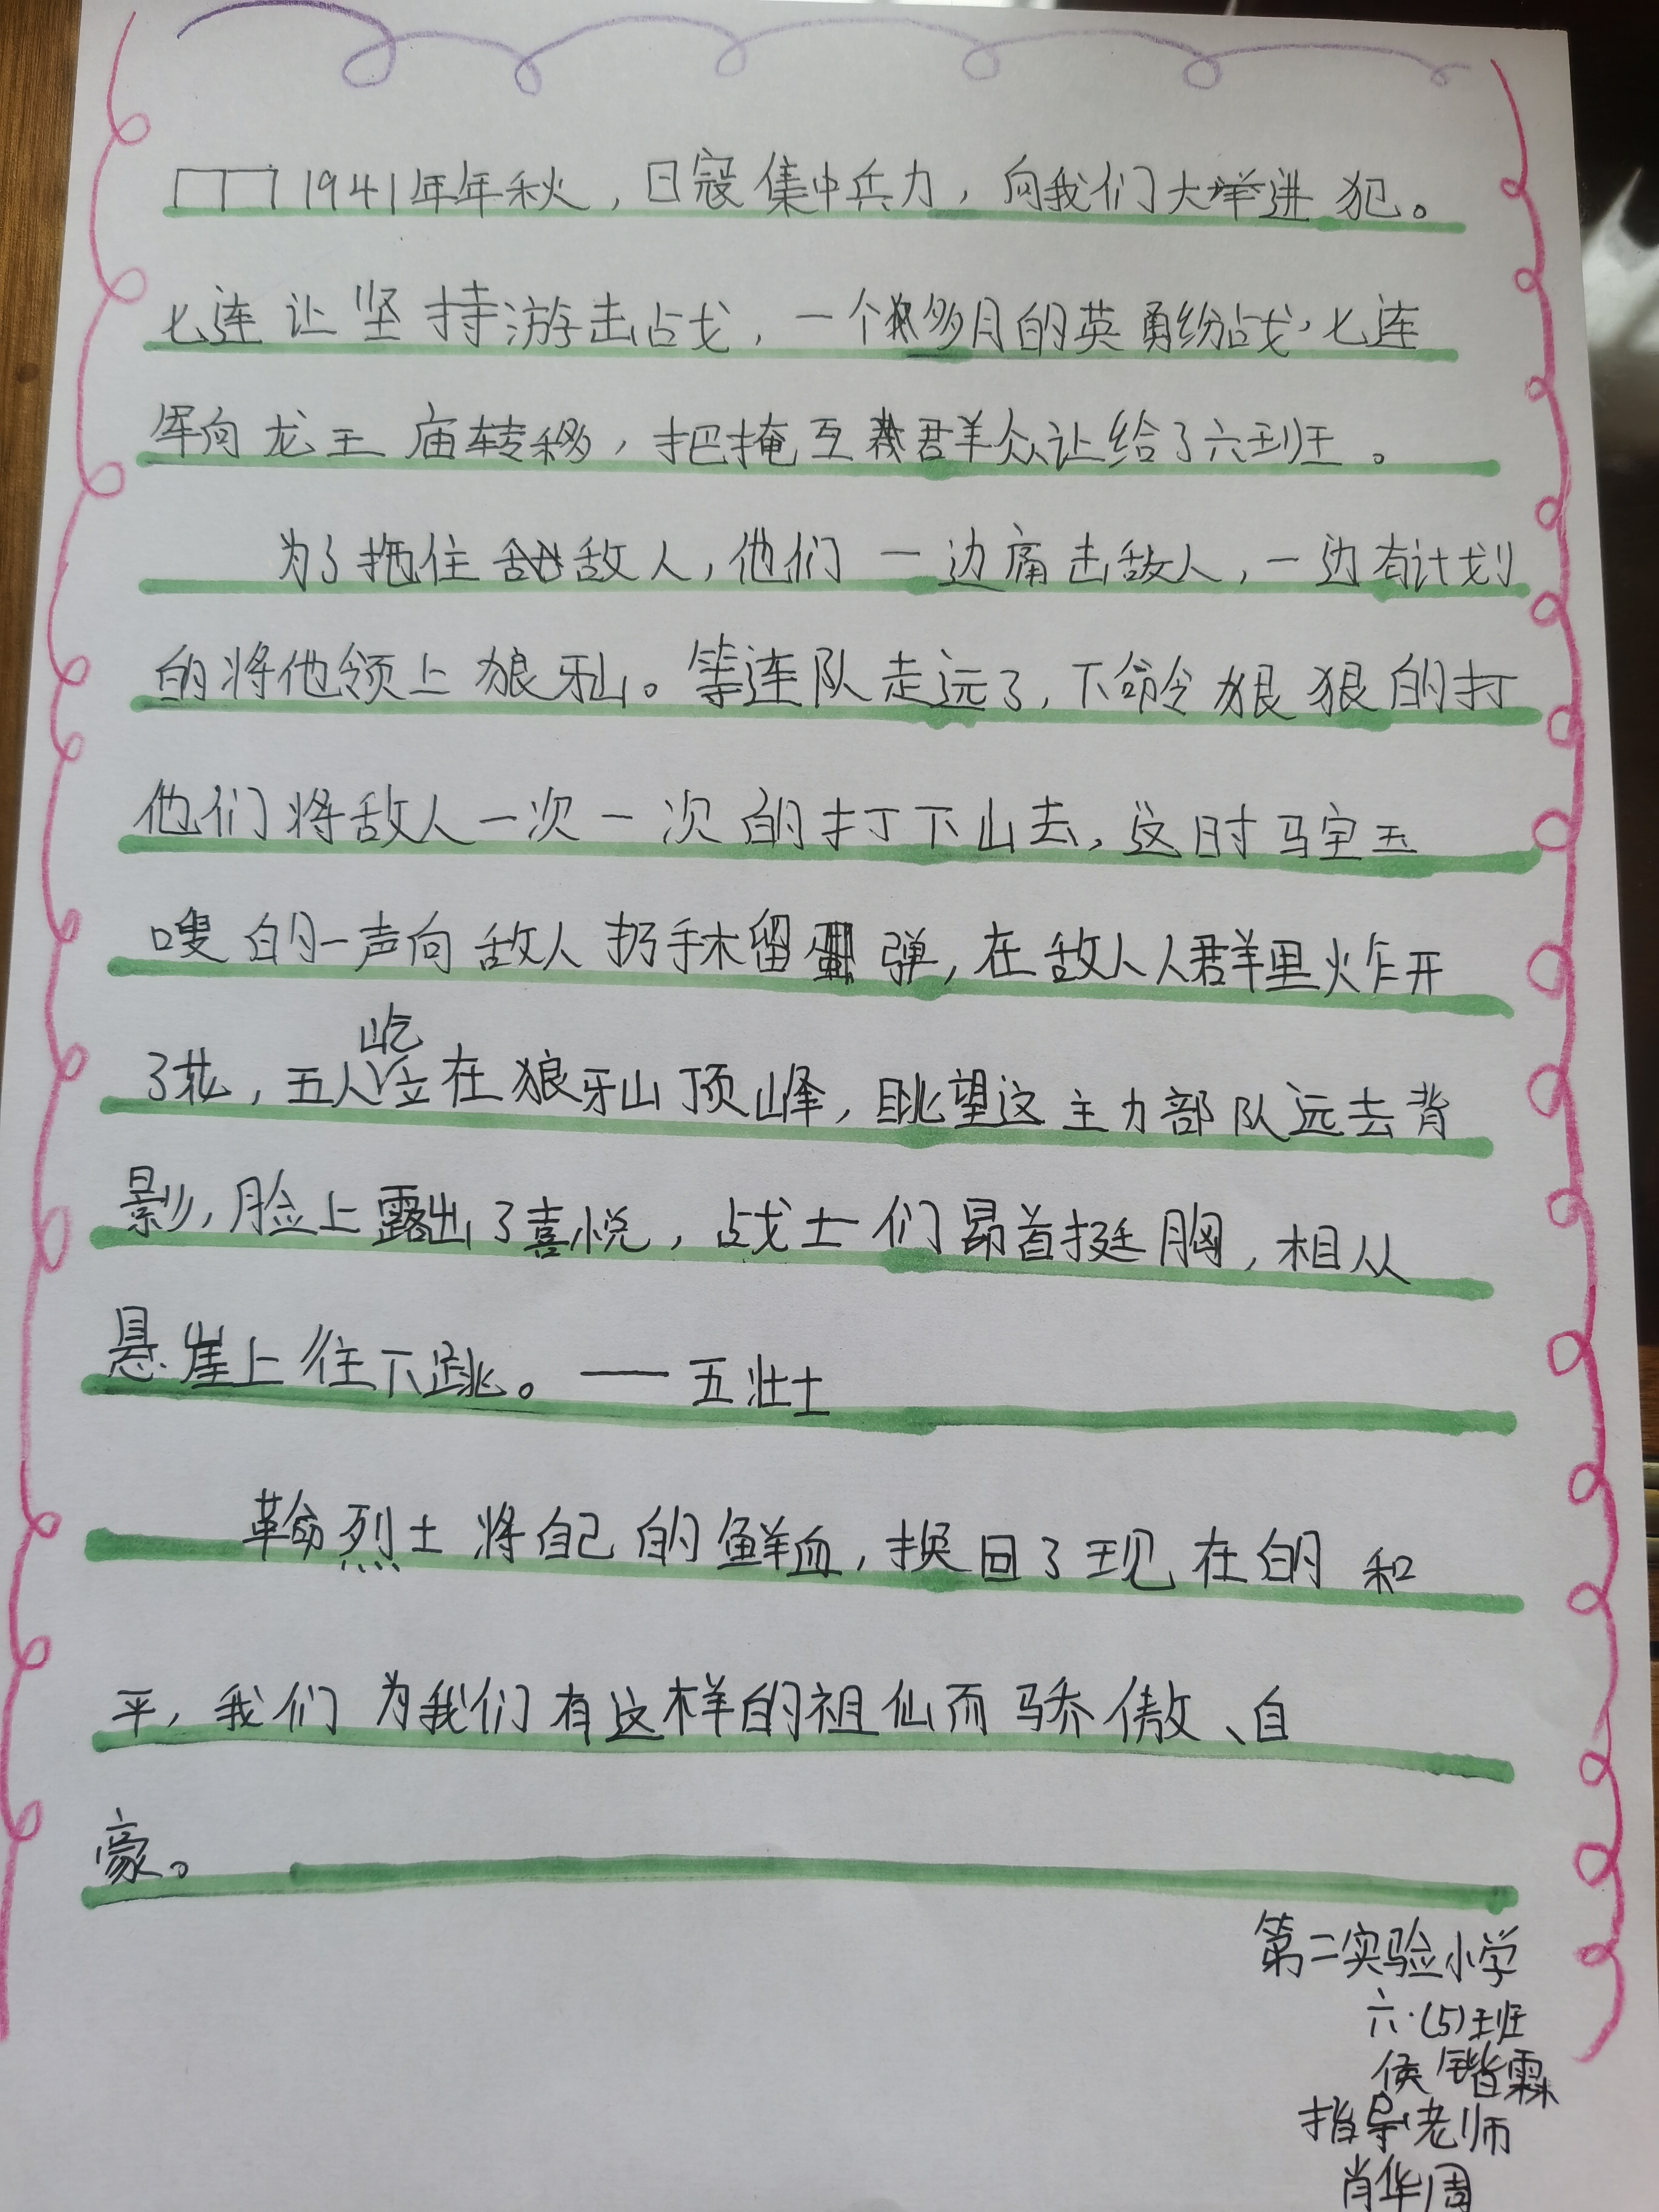 1941年年秋，日寇集中兵力，向我们大举进犯。
七连让坚持游击占戈，一个多月的英勇纷战，七连
军向龙王庙转移，把掩互群众让给了六班。
为了拖住敌人，他们一边痛击敌人，一边有计划
的将他领上狼牙山。等连队走远了，下命令狠狠的打
他们将敌人一次一次的打下山去，这时马宝玉
嗖的一声向敌人扔手木留弹，在敌人人群里炸开
了花，五人屹立在狼牙山顶峰，眺望这主力部队远去背
影，脸上露出了喜悦，战士们昂首挺胸，相从
悬崖上往下跳。——五壮士
革命烈士将自己的鲜血，换回了现在的和
平，我们为我们有这样的祖仙而骄傲、自
豪。
第二实验小学
六·(5)班
侯锴霖
指导老师
肖华周